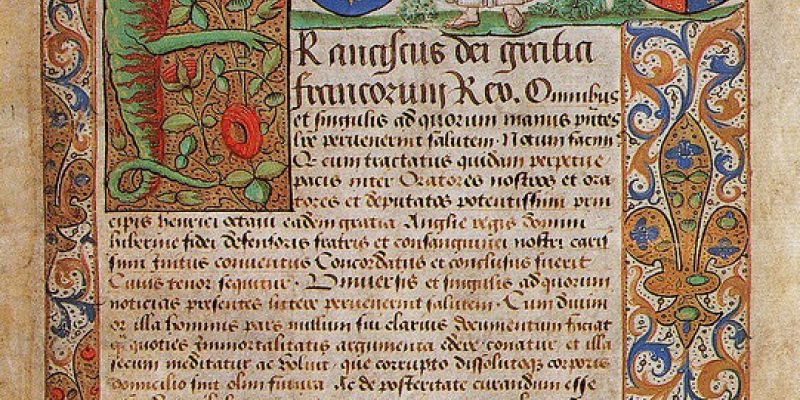 Franciscus dei gratia
francorum Rex. Omnibus
et singulis ad quorum manus pñtes
lrẽ pervenerint salutem. Notum facim9
Q cum tractatus quidam perpetue
pacis inter Oratores nostros et ora
tores et deputatos potentissimi prin
cipis henrici octavi eadem gratia Anglie regis domini
hibernie fidei defensoris fratris et consanguinei nostri caris
simi Initus conventus Concordatus et conclusus fuerit
Cuius tenor sequitur. Universis et singulis ad quorum
noticias presentes littere pervenerint salutem. Cum divini
or illa hominis pars nullum sui clarius documentum faciat
q̃ quoties Immortalitatis argumenta edere conatur et illa
secum meditatur ac voluit, que corrupto dissolutoq corporis
domicilio sint olim futura. Ac de posteritate curandum esse